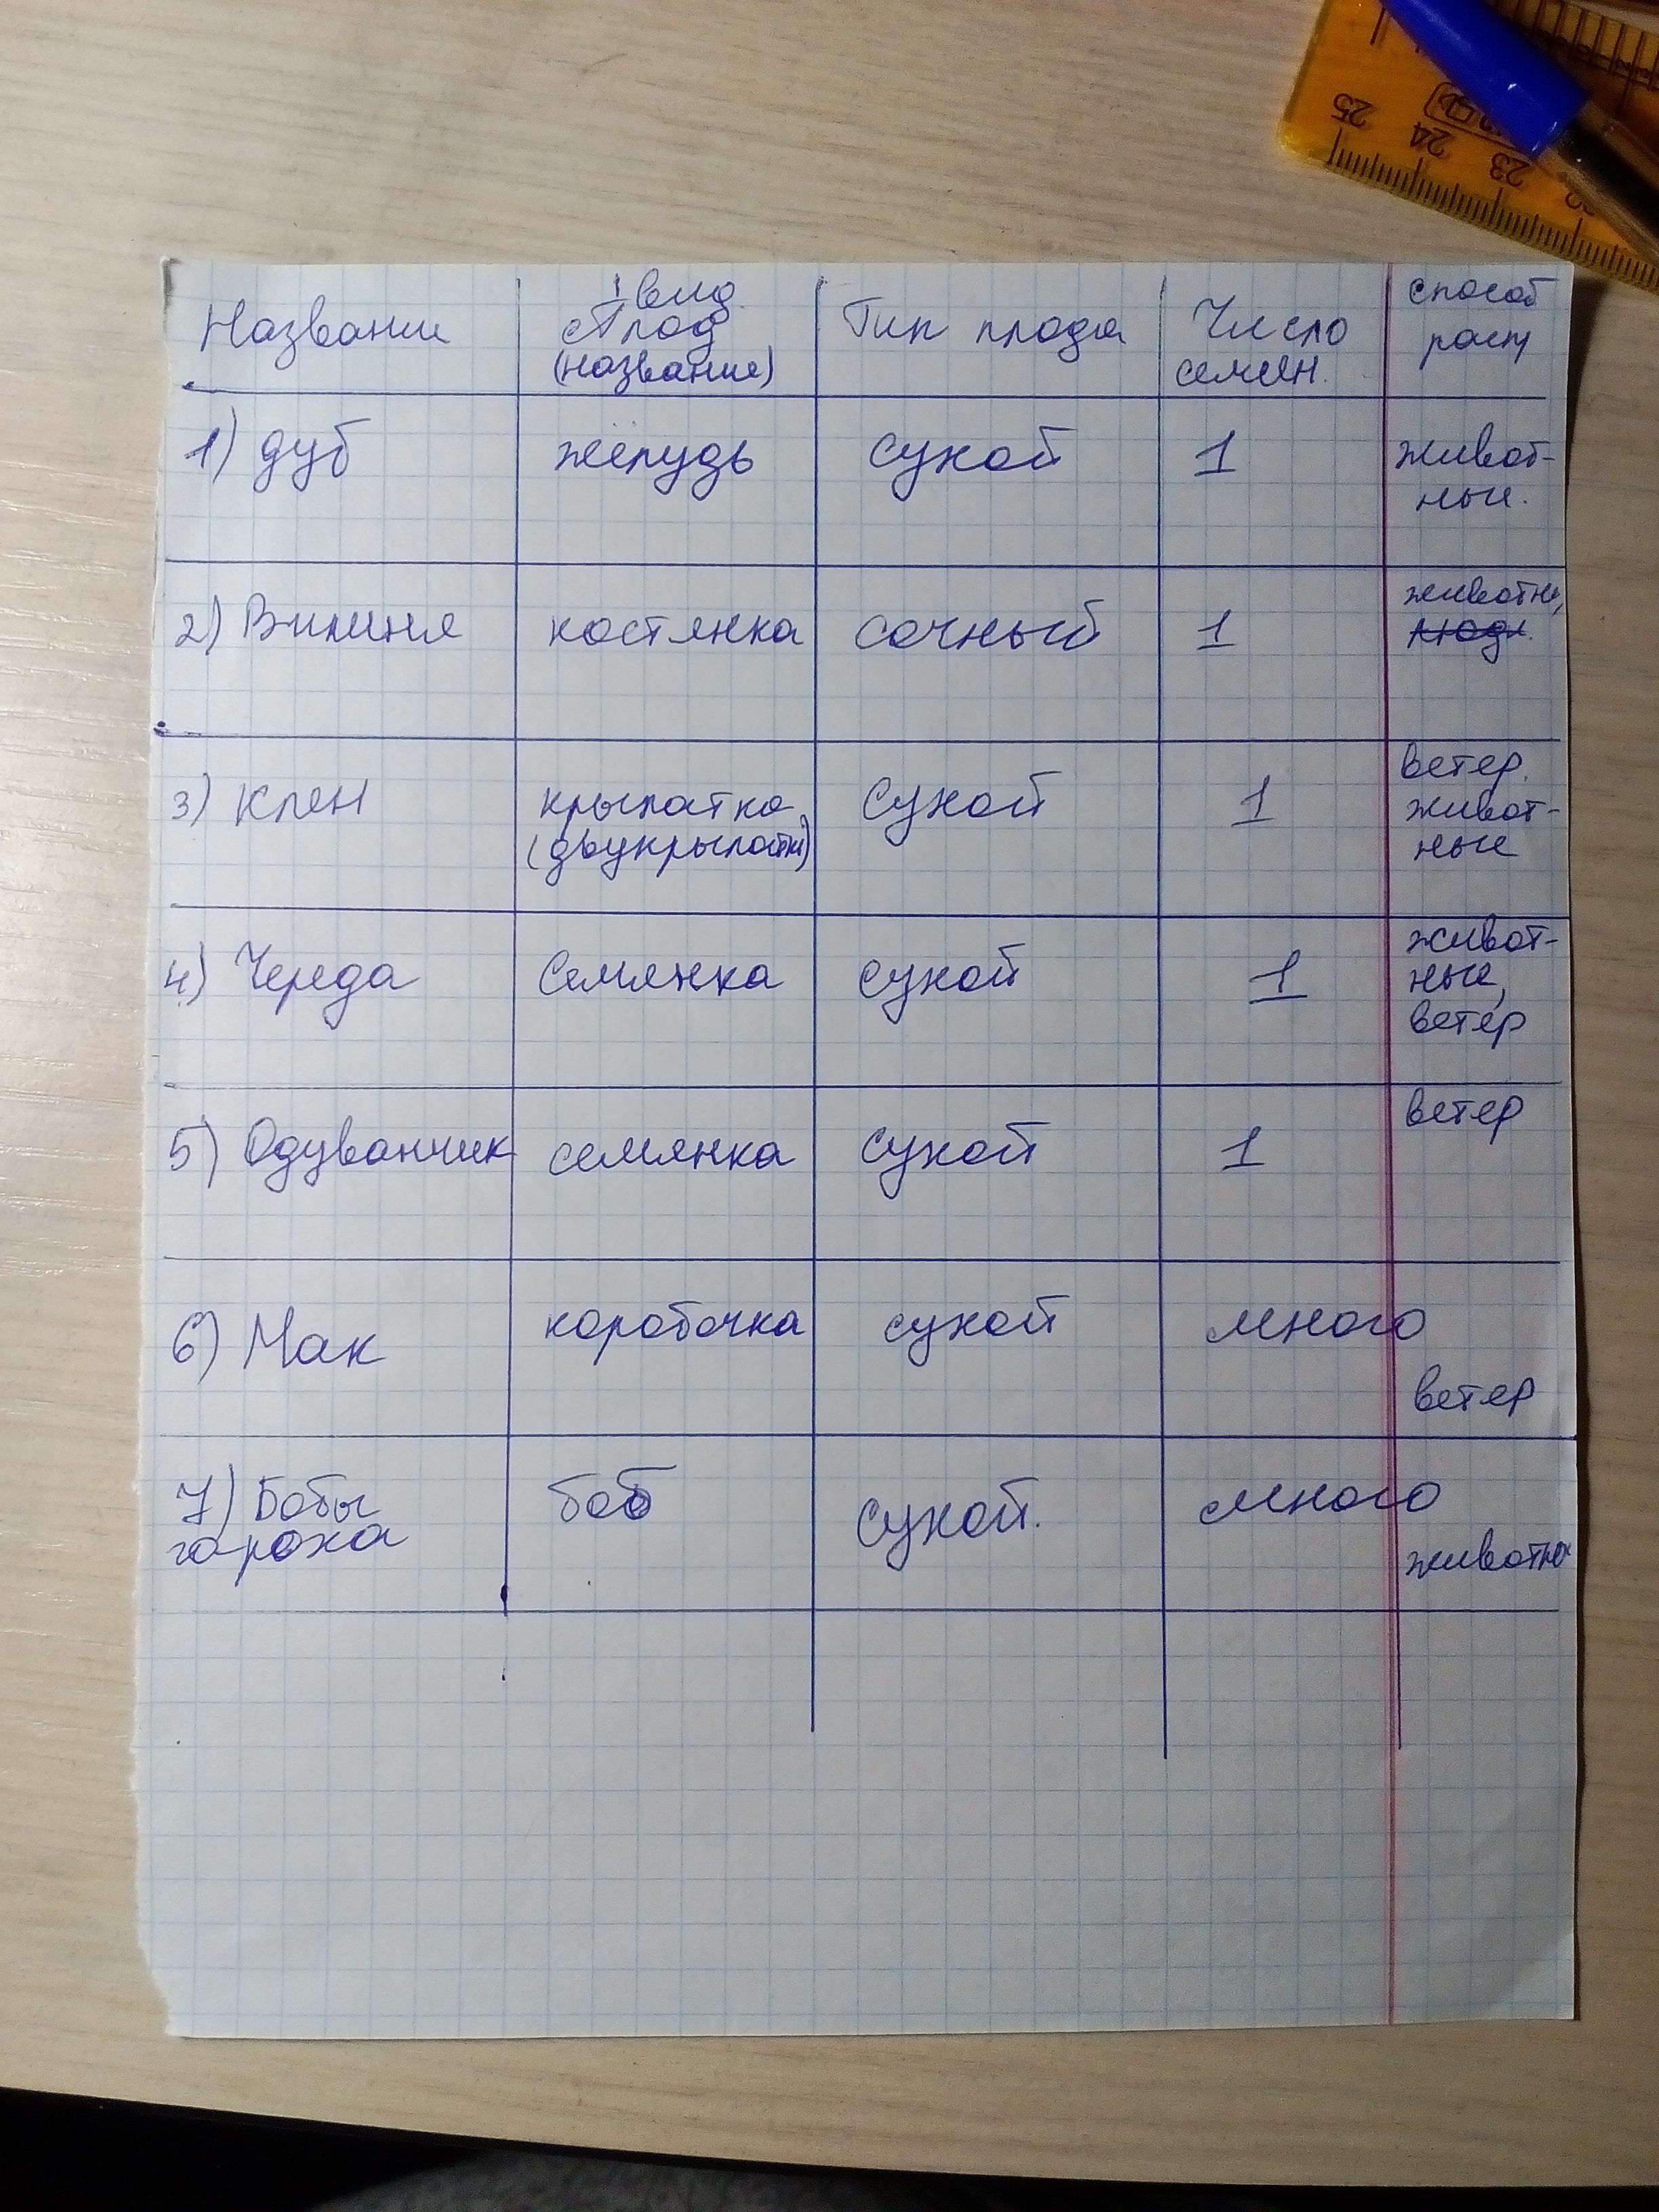 Название
вид
Плод
(название)
Тип плода
Число
семян.
способ
расп
1) дуб
жёлудь
сухой
1
живот-
ные.
2) Вишня
костянка
сочный
1
животн,
3) Клен
крылатка
(двукрылатка)
сухой
1
ветер.
живот-
ные
4) Череда
Семянка
сухой
1
живот-
ные,
ветер
5) Одуванчик
семянка
сухой
1
ветер
6) Мак
коробочка
сухой
много
ветер
7) Бобы
гороха
боб
сухой.
много
животны
25
24
23